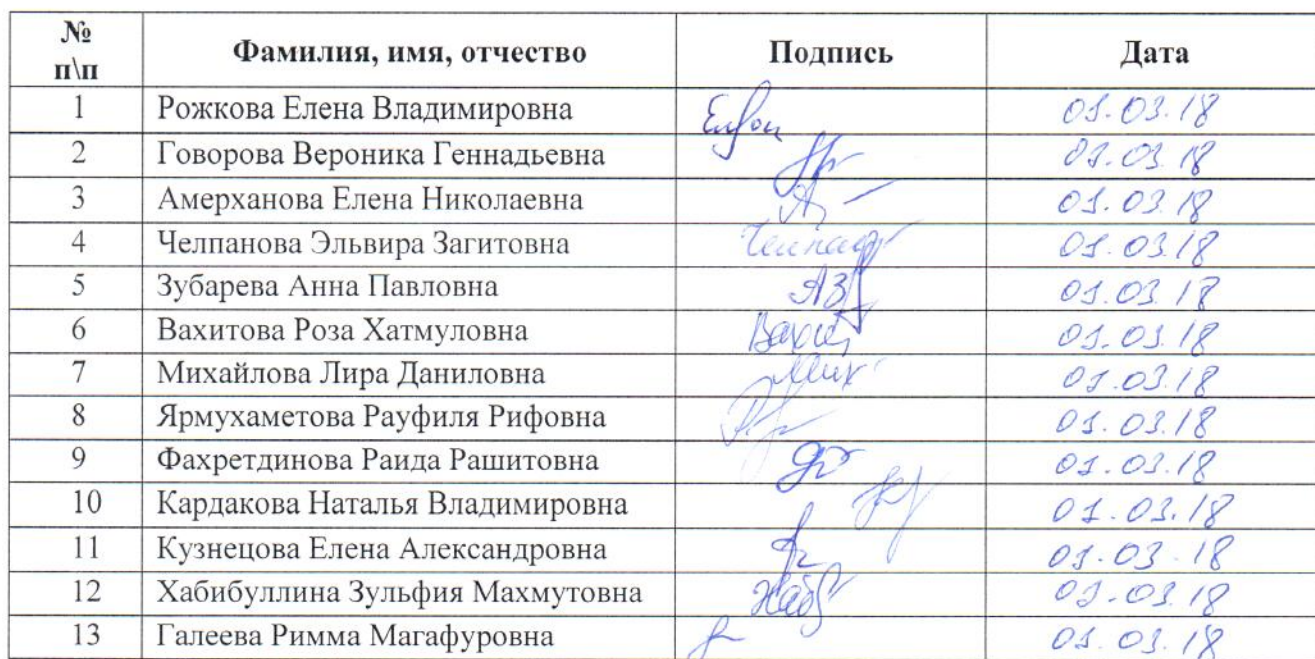 № п\п Фамилия, имя, отчество Подпись Дата
1 Рожкова Елена Владимировна 01.03.18
2 Говорова Вероника Геннадьевна 01.03.18
3 Амерханова Елена Николаевна 01.03.18
4 Челпанова Эльвира Загитовна 01.03.18
5 Зубарева Анна Павловна 01.03.18
6 Вахитова Роза Хатмуловна 01.03.18
7 Михайлова Лира Даниловна 01.03.18
8 Ярмухаметова Рауфиля Рифовна 01.03.18
9 Фахретдинова Раида Рашитовна 01.03.18
10 Кардакова Наталья Владимировна 01.03.18
11 Кузнецова Елена Александровна 01.03.18
12 Хабибуллина Зульфия Махмутовна 01.03.18
13 Галеева Римма Магафуровна 01.03.18